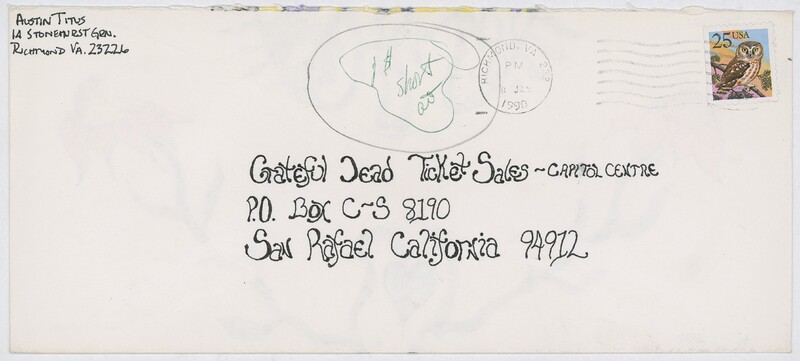 Austin Titus
1A Stonehurst Grn.
Richmond Va. 23226
1 $
short
RICHMOND, VA
PM
1990
25 USA
Grateful Dead Ticket Sales ~ Capitol Centre
P.O. Box C~S 8190
San Rafael California 94912